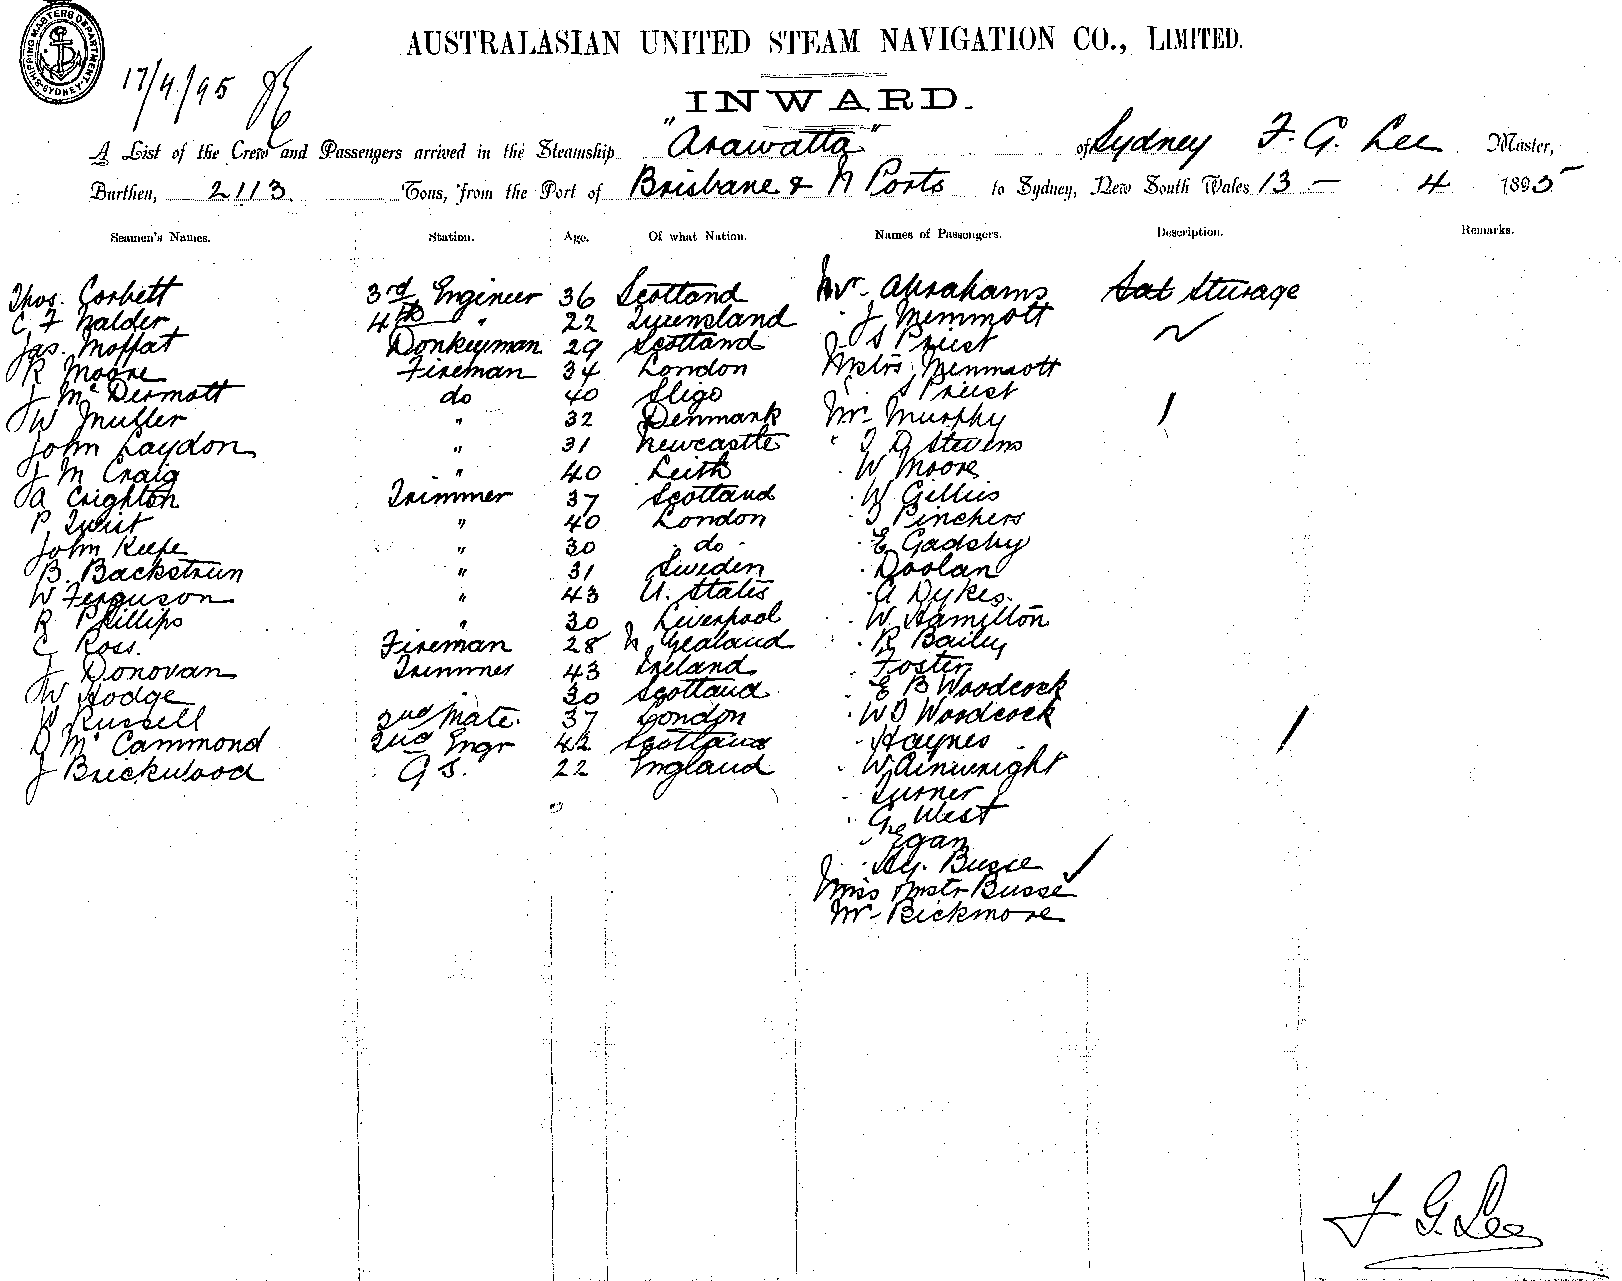 SHIPPING MASTERS DEPARTMENT. SYDNEY.
17/4/95
AUSTRALASIAN UNITED STEAM NAVIGATION CO., LIMITED.
INWARD.
A List of the Crew and Passengers arrived in the Steamship "Arawatta" of Sydney F. G. Lee Master,
Burthen, 2113 Tons, from the Port of Brisbane & N Ports to Sydney, New South Wales 13 - 4 1895
Seamen's Names. Station. Age. Of what Nation. Names of Passengers. Description. Remarks.
Thos. Corbett 3rd Engineer 36 Scotland Mr. Abrahams Sturage
C F Nalder 4th " 22 Queensland J Memmott
Jas. Moffat Donkeyman 29 Scotland S Priest
R Moore Fireman 34 London Mstrs, Memmott
J Mc Dermott do 40 Sligo S Priest
W Muller " 32 Denmark Mr. Murphy
John Laydon " 31 Newcastle " J D Stevens
J M Craig " 40 Leith W Moore
A Crighton Trimmer 37 Scotland W Gillies
P Twist " 40 London Pinchers
John Keefe " 30 do E Gadsby
B. Backstrun " 31 Sweden Doolan
W Ferguson " 43 U. States A Dykes.
R Phillips " 30 Liverpool W Hamilton
C Ross. Fireman 28 N Zealand R Baily
J Donovan Trimmer 43 Ireland Foster
W Hodge 30 Scotland E B Woodcock
W Russell 2nd Mate. 37 London W J Woodcock
D Mc Cammond 2nd Engr 42 Scotland Haynes
J Brickwood G S. 22 England Wainwright
Turner
G West
Egan
Hy. Busse
Miss & Mstr Busse
Mr. Bickmore
F G. Lee